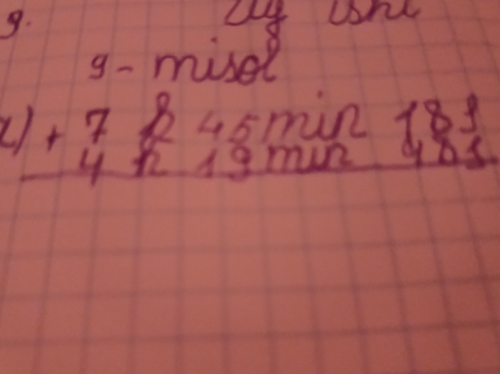 9. Uy ishi
9 - misol
+ 7 h 45 min 18 s
4 h 19 min 48 s